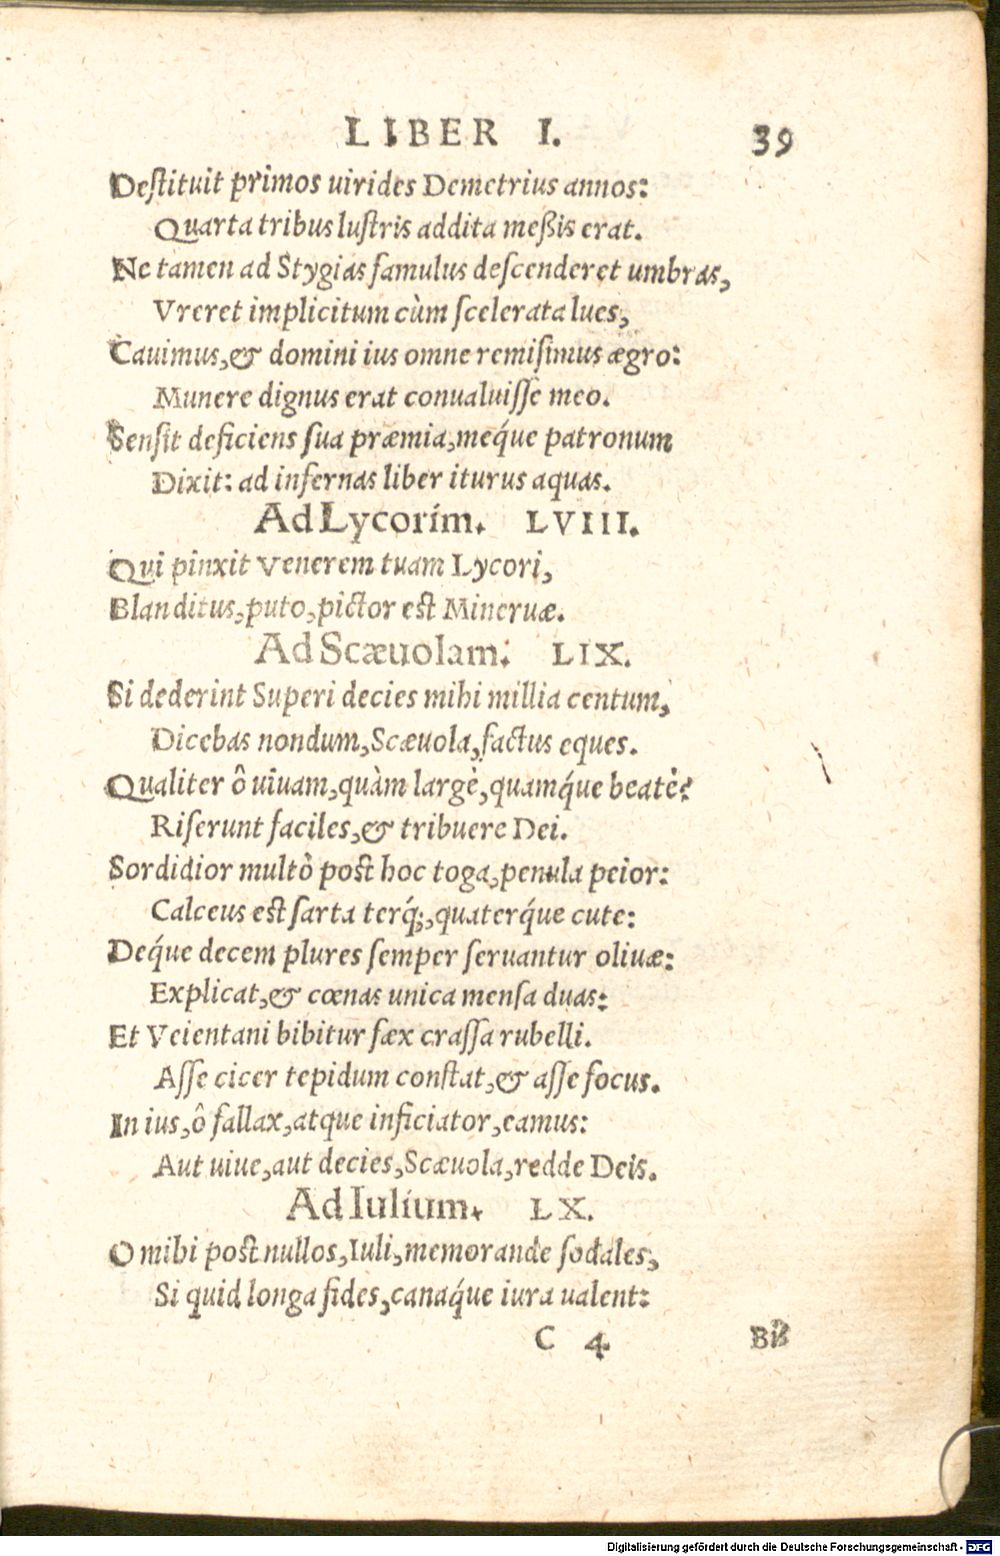 LIBER I. 39
Destituit primos uirides Demetrius annos:
Quarta tribus lustris addita meßis erat.
Ne tamen ad Stygias famulus descenderet umbras,
Vreret implicitum cùm scelerata lues,
Cauimus, & domini ius omne remisimus ægro:
Munere dignus erat conualuisse meo.
Sensit deficiens sua præmia, meq́ue patronum
Dixit: ad infernas liber iturus aquas.
Ad Lycorim. LVIII.
Qui pinxit Venerem tuam Lycori,
Blanditus, puto, pictor est Mineruæ.
Ad Scæuolam. LIX.
Si dederint Superi decies mihi millia centum,
Dicebas nondum, Scæuola, factus eques.
Qualiter ô uiuam, quàm largè, quamq́ue beatè?
Riserunt faciles, & tribuere Dei.
Sordidior multò post hoc toga, penula peior:
Calceus est sarta terq́;, quaterq́ue cute:
Deq́ue decem plures semper seruantur oliuæ:
Explicat, & cœnas unica mensa duas:
Et Veientani bibitur fæx crassa rubelli.
Asse cicer tepidum constat, & asse focus.
In ius, ô fallax, atque inficiator, eamus:
Aut uiue, aut decies, Scæuola, redde Deis.
Ad Iulium. LX.
O mihi post nullos, Iuli, memorande sodales,
Si quid longa fides, canaq́ue iura ualent:
C 4 Biß
Digitalisierung gefördert durch die Deutsche Forschungsgemeinschaft - DFG